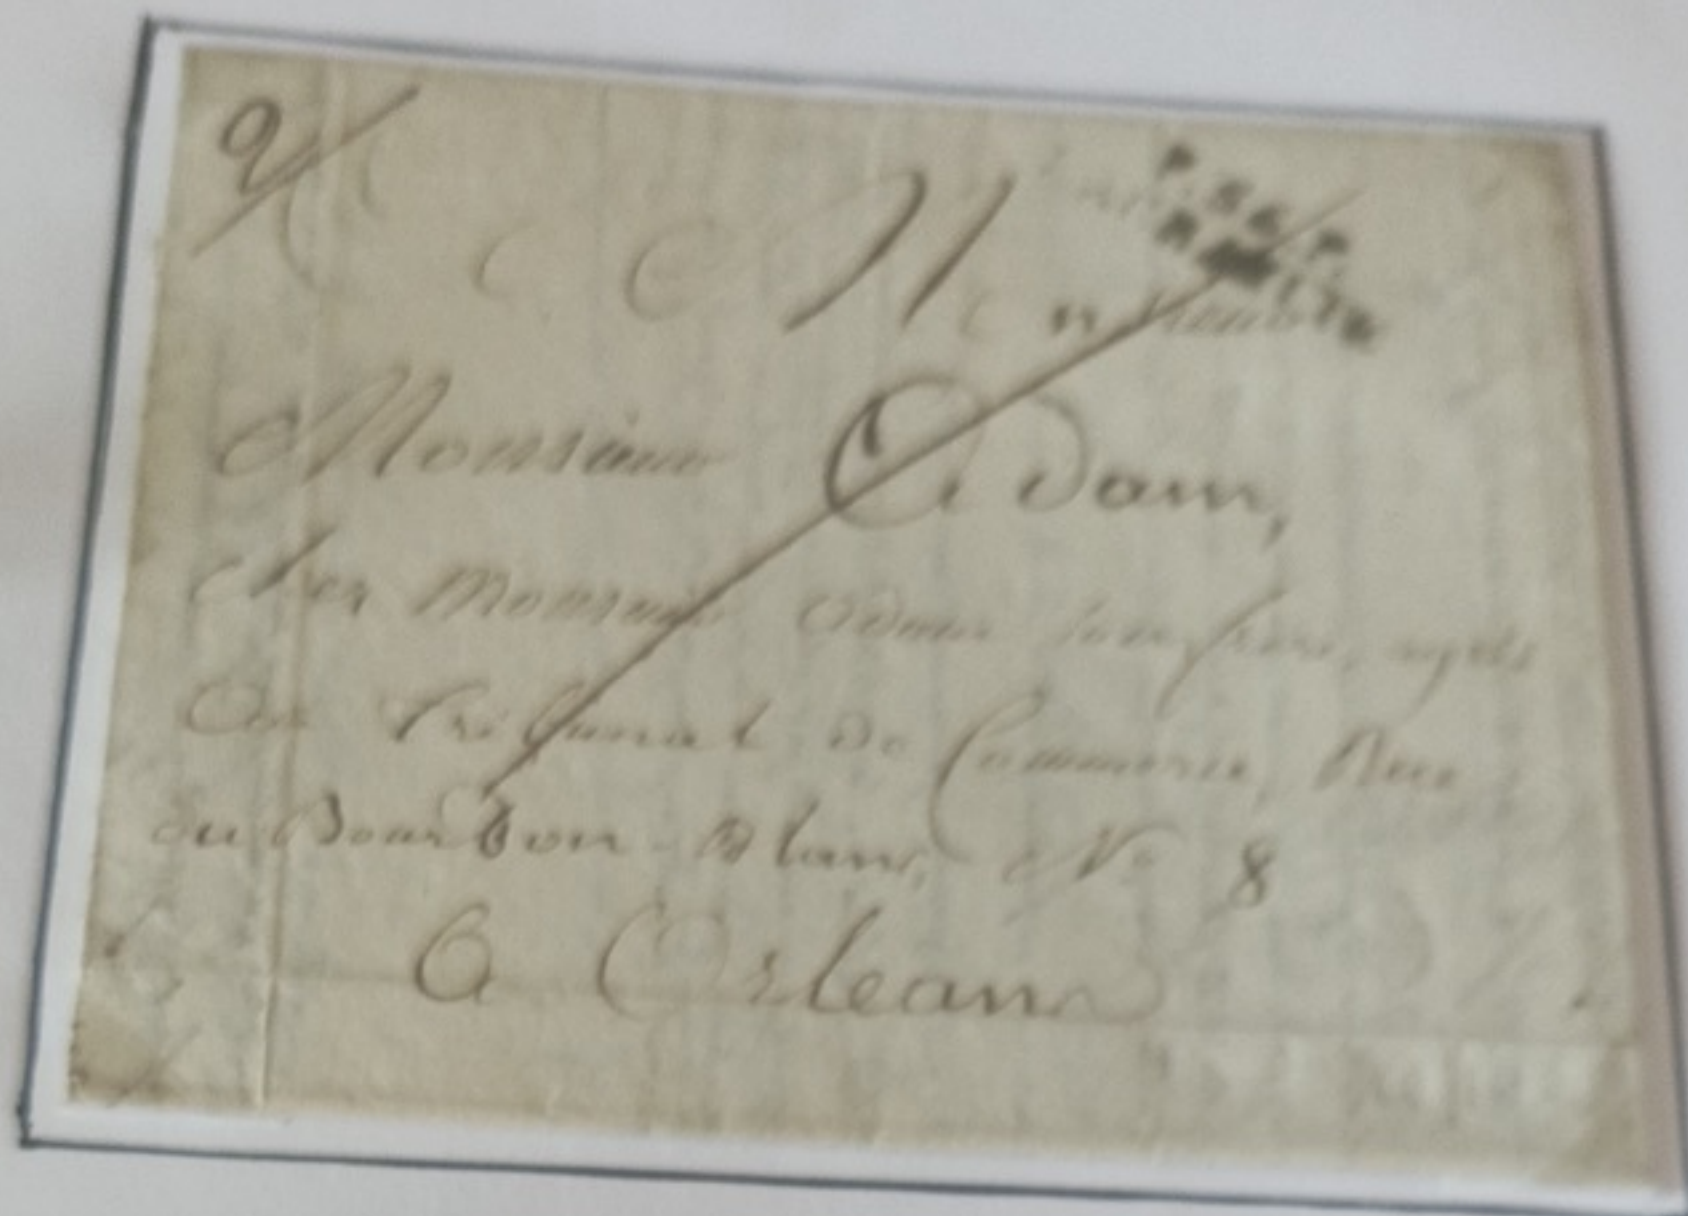 Monsieur Adam,
chez Monsieur Adam son frère, agréé
Au Tribunal de Commerce, Rue
du Bourbon-Blanc, N° 8
A Orleans